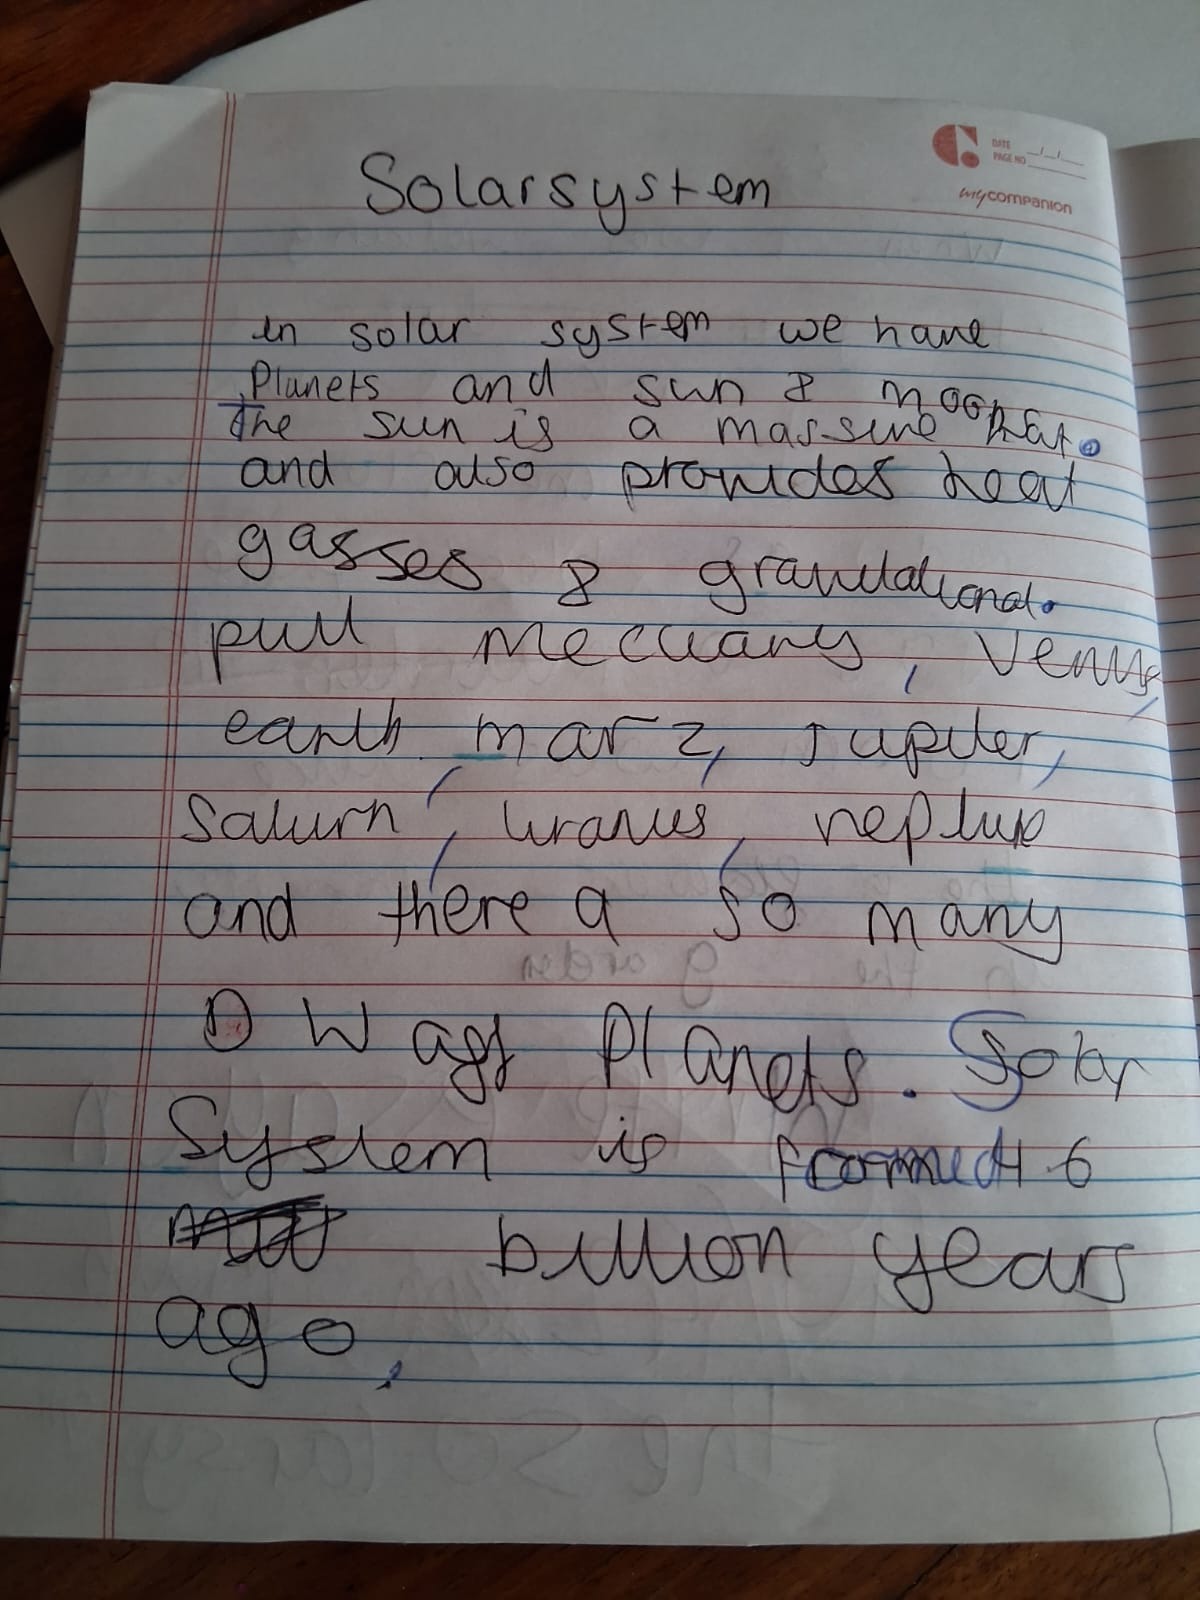 DATE __/__/__
PAGE NO
mycompanion
Solarsystem
in solar system we have
Planets and sun & moon.
The sun is a massive
and also provides heat
gasses & gravitational.
pull mecuary, Venus,
earth, marz, Jupiter,
Saturn, uranus, neptune
and there a so many
DWarf Planets. Solar
System is formed 4.6
billion years
ago.